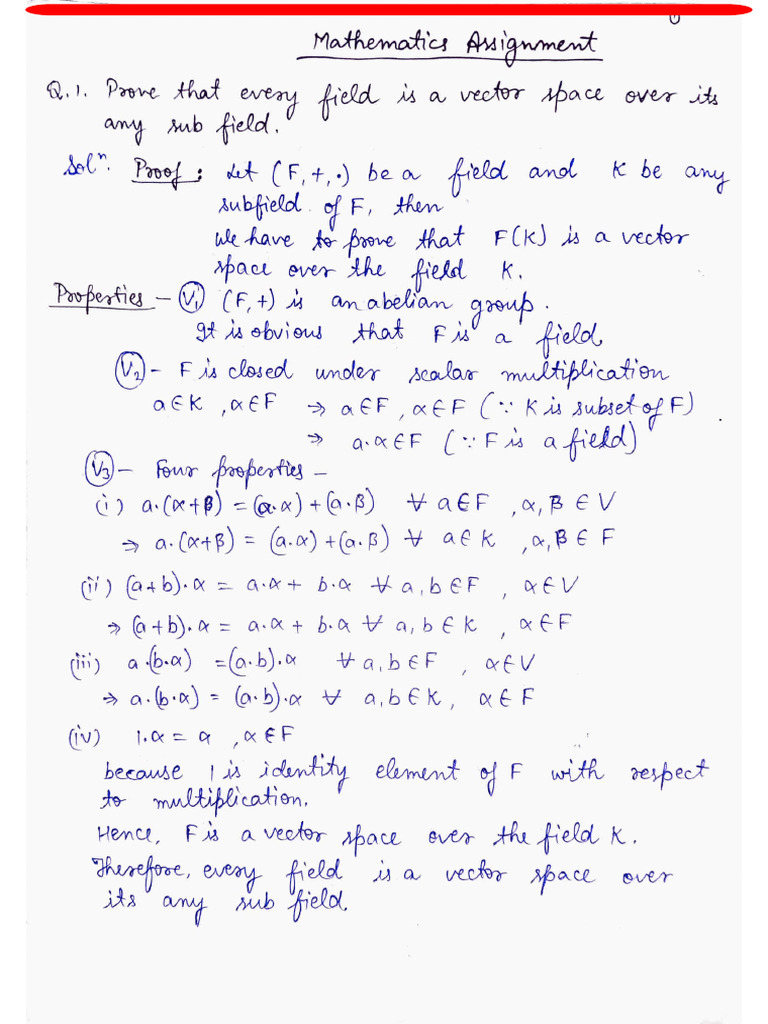 ①
Mathematics Assignment
Q.1. Prove that every field is a vector space over its
any sub field.
Solⁿ. Proof : Let (F,+,·) be a field and K be any
subfield of F, then
We have to prove that F(K) is a vector
space over the field K.
Properties - (V₁) (F,+) is an abelian group.
It is obvious that F is a field.
(V₂) - F is closed under scalar multiplication
a∈K , α∈F ⇒ a∈F , α∈F (∵ K is subset of F)
⇒ a.α∈F (∵ F is a field)
(V₃) - Four properties -
(i) a.(α+β) = (a.α)+(a.β) ∀ a∈F , α,β ∈ V
⇒ a.(α+β) = (a.α)+(a.β) ∀ a∈K , α,β ∈ F
(ii) (a+b).α = a.α + b.α ∀ a,b∈F , α∈V
⇒ (a+b).α = a.α + b.α ∀ a,b∈K , α∈F
(iii) a.(b.α) = (a.b).α ∀ a,b∈F , α∈V
⇒ a.(b.α) = (a.b).α ∀ a,b∈K, α∈F
(iv) 1.α = α , α∈F
because 1 is identity element of F with respect
to multiplication.
Hence, F is a vector space over the field K.
Therefore, every field is a vector space over
its any sub field.